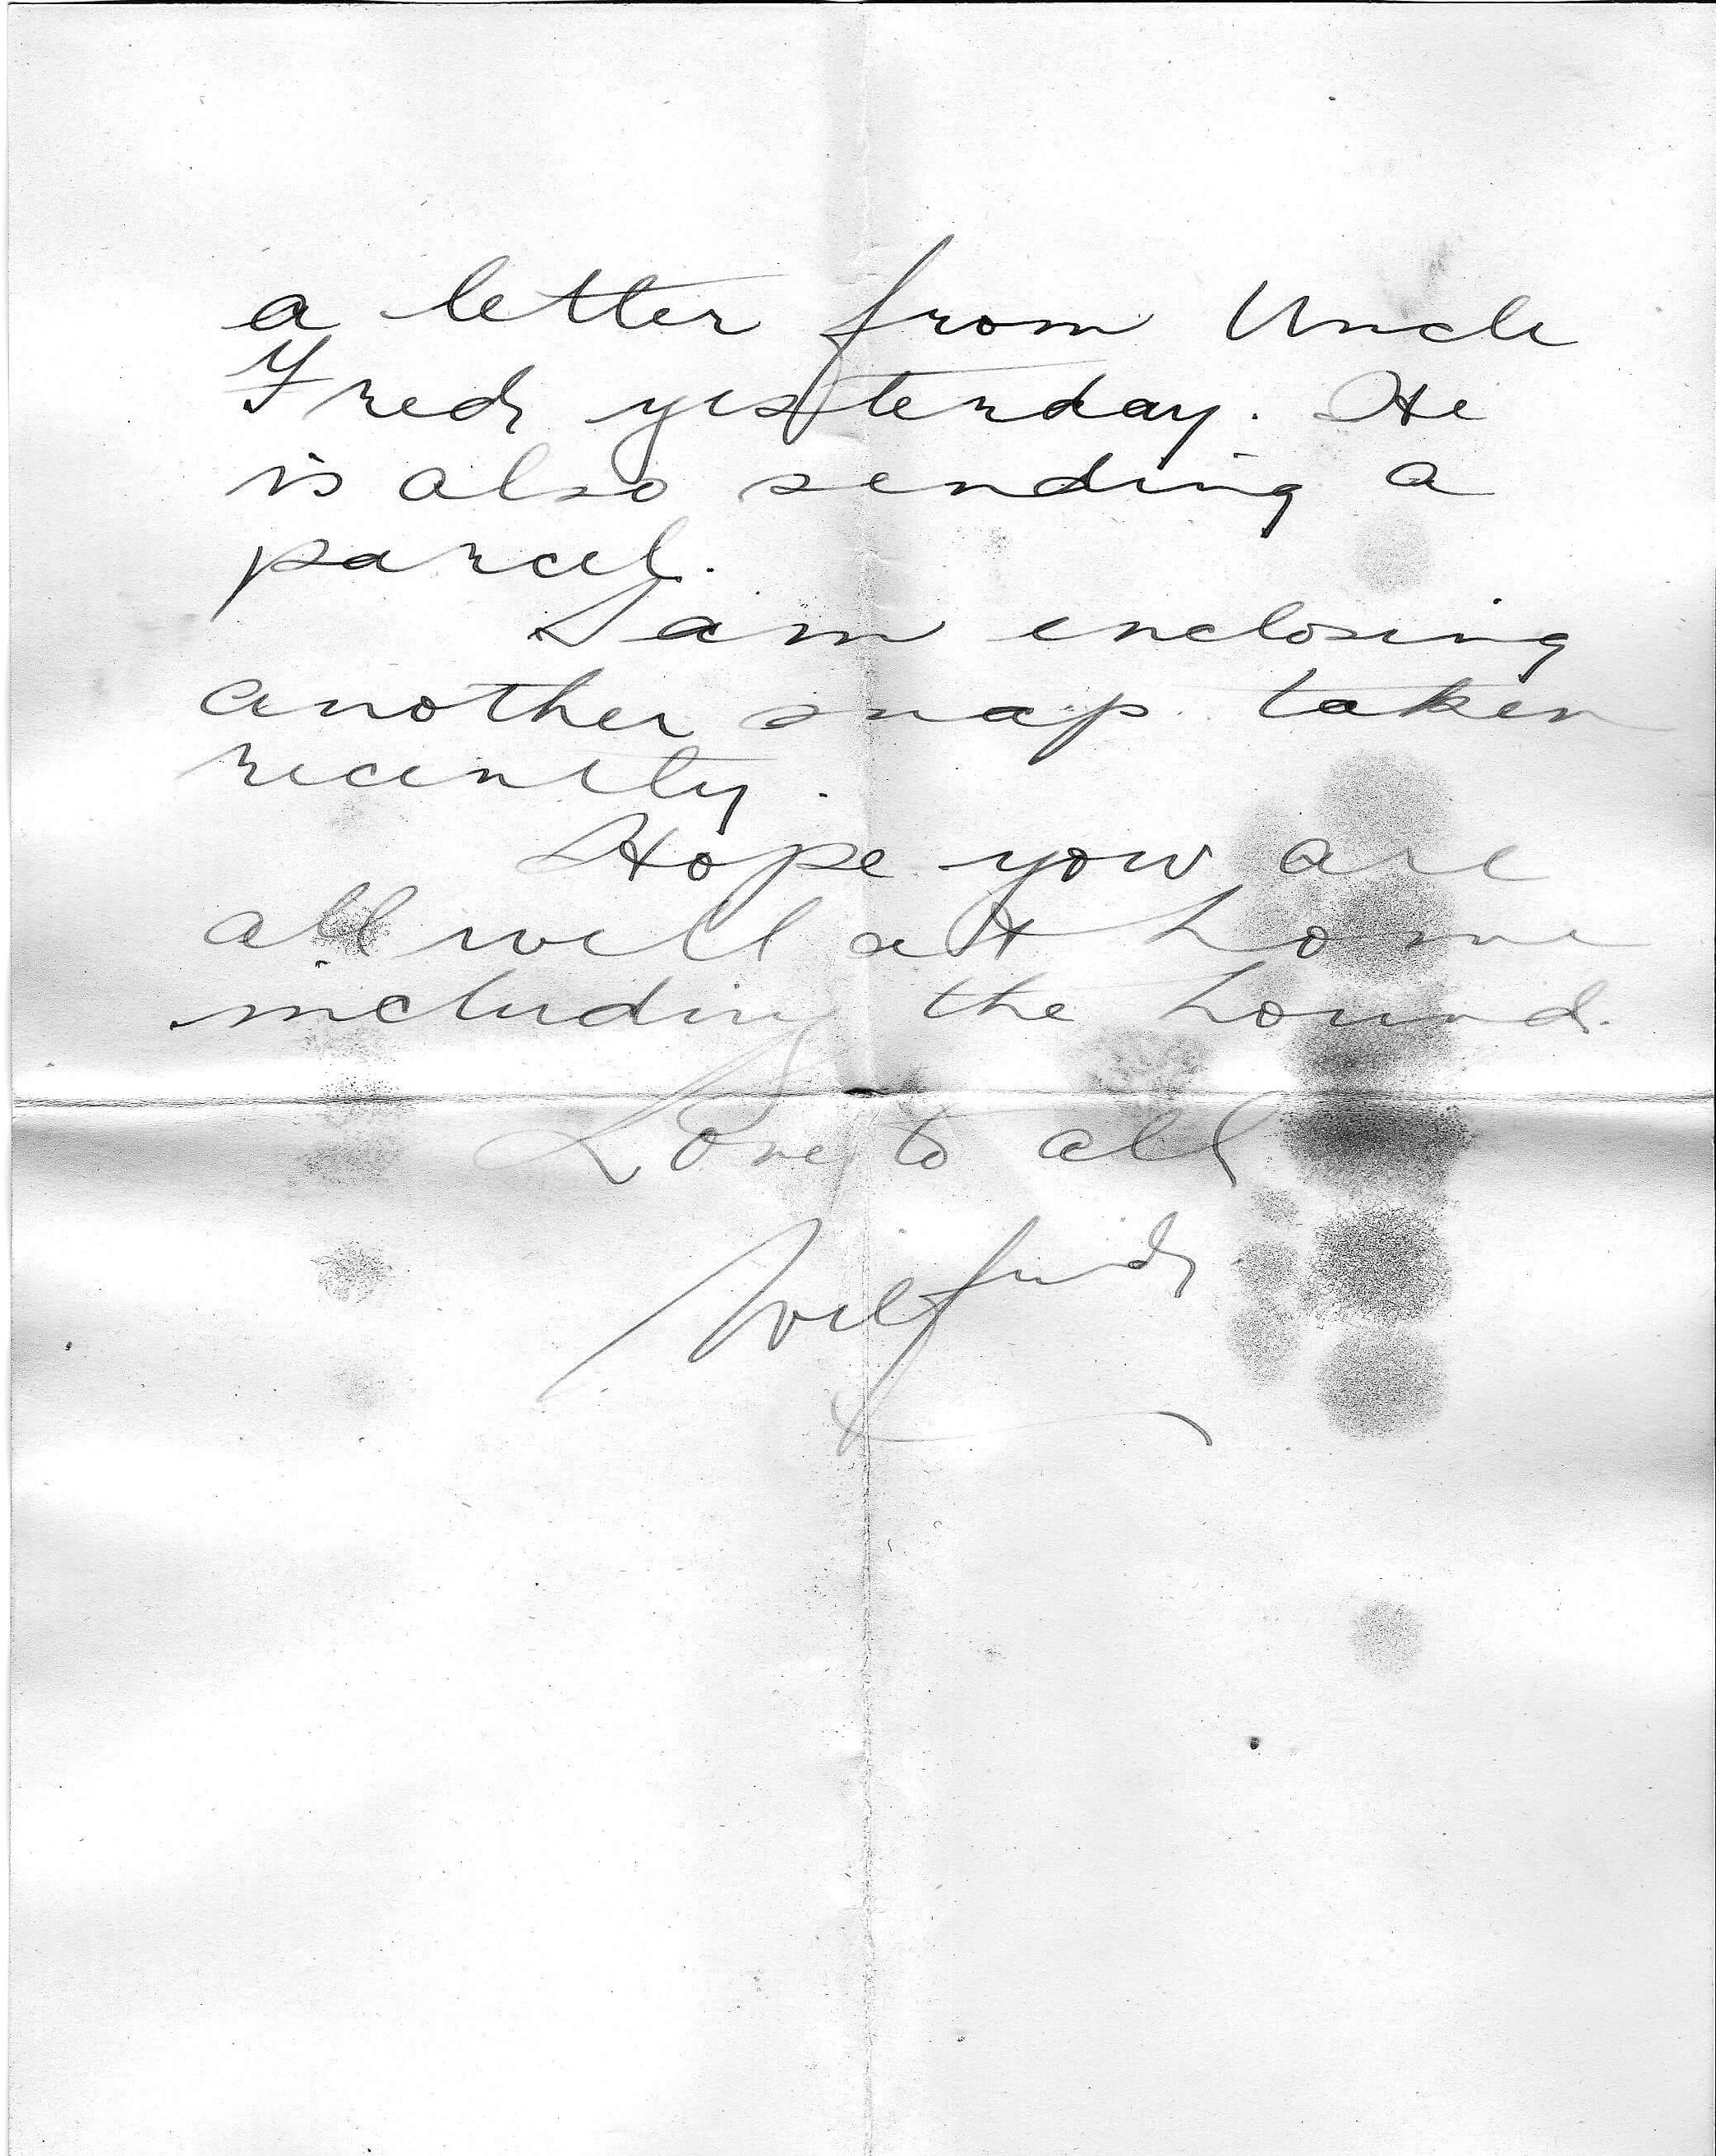 a letter from Uncle
Fred yesterday. He
is also sending a
parcel.
I am enclosing
another snap taken
recently.
Hope you are
all well at home
including the hound.
Love to all
Wilfrid